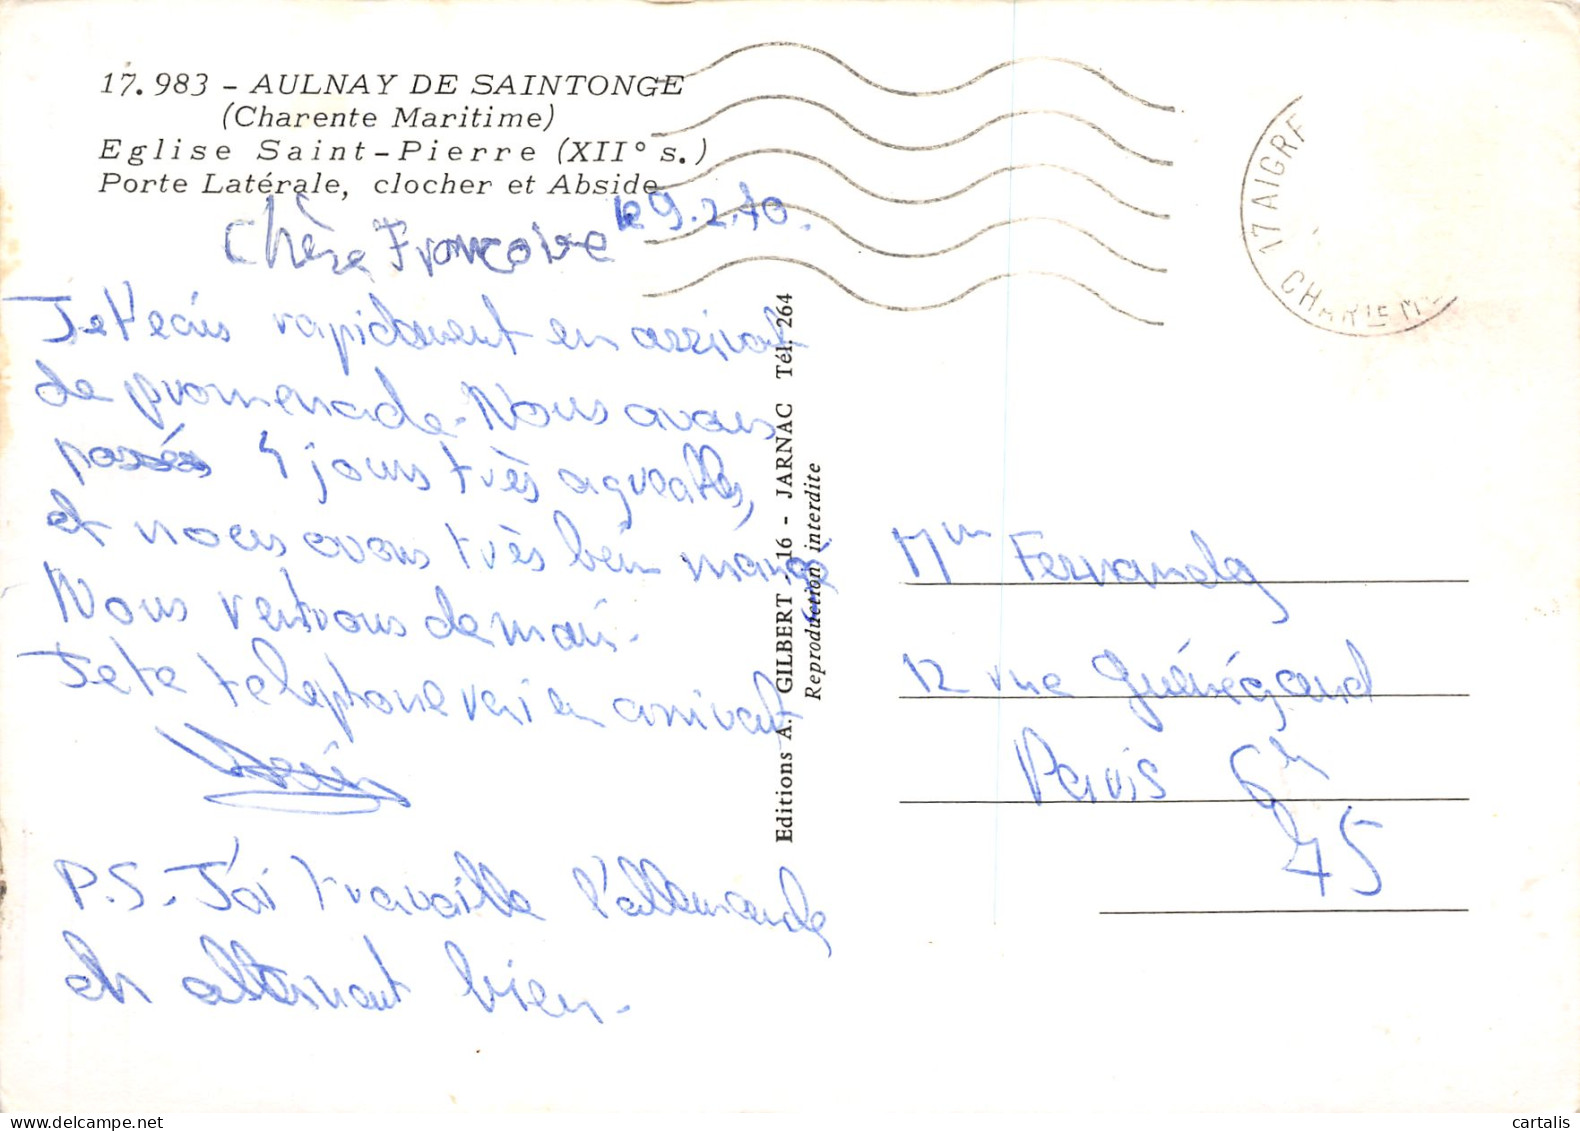 17.983 - AULNAY DE SAINTONGE
(Charente Maritime)
Eglise Saint-Pierre (XII° s.)
Porte Latérale, clocher et Abside
le 9.2.70.
Chère Françoise
Je t'écris rapidement en arrivant
de promenade. Nous avons
passés 4 jours très agréables,
et nous avons très bien mangé
Nous rentrons demain.
Je te telephonerai en arrivant
P.S. J'ai travaillé l'allemande
en alternant bien.
Editions A. GILBERT - 16 - JARNAC Tél. 264
Reproduction interdite
17 AIGRF
CHAR
Fernande
12 rue Guénégaud
Paris 6
75
cartalis